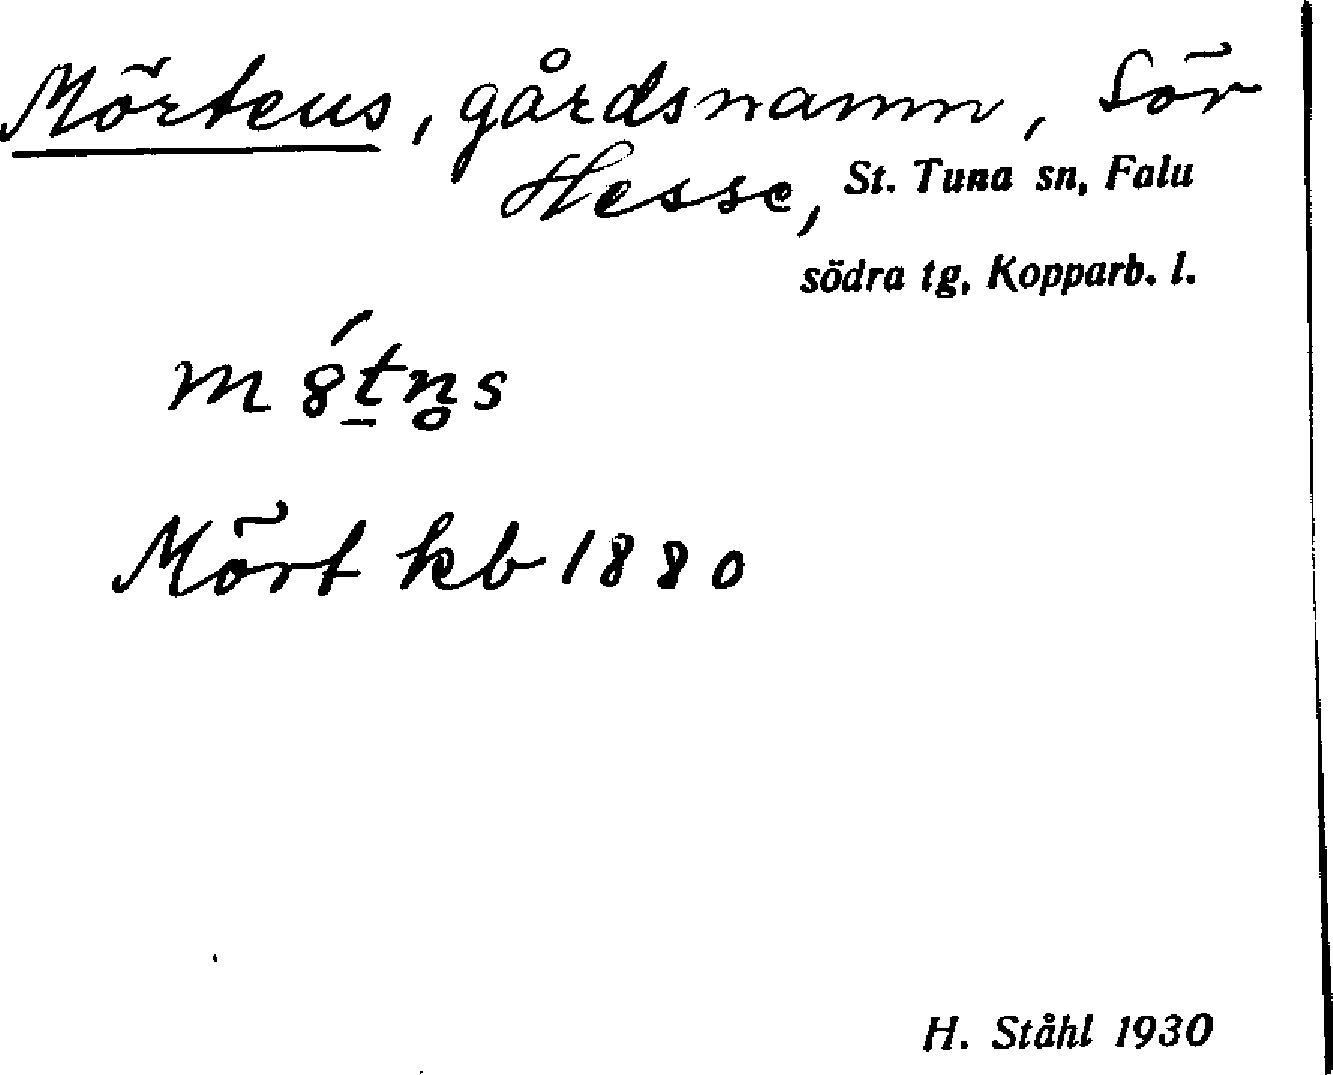 Mörtens, gårdsnamn, Sör
Hesse, St. Tuna sn, Falu
södra tg, Kopparb. l.
Mört kb 1880
H. Ståhl 1930